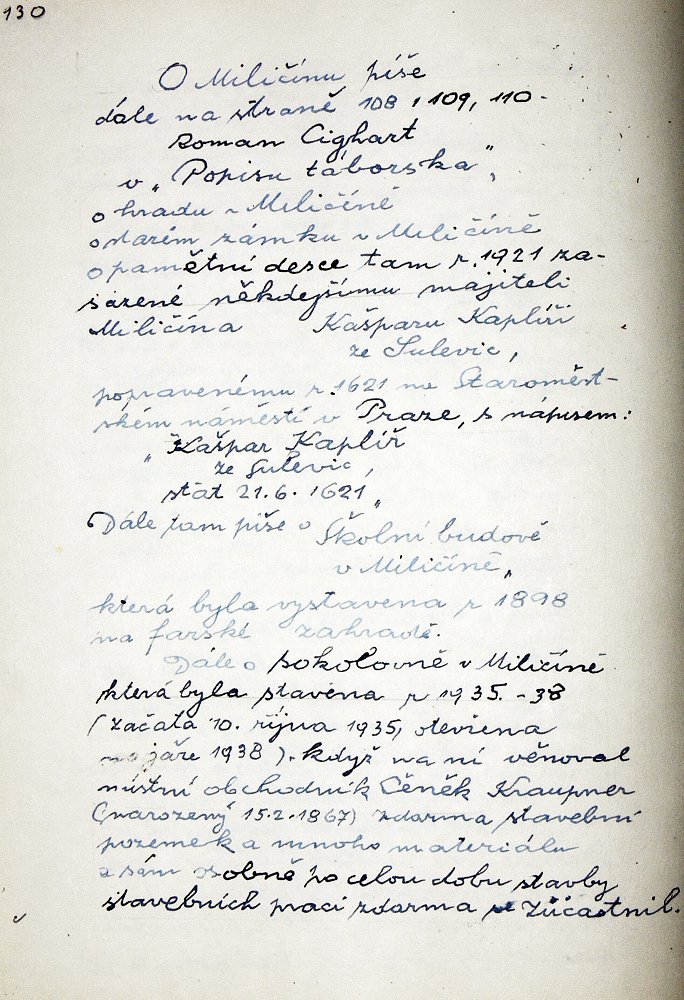 130
O Miličínu píše
dále na straně 108, 109, 110 -
Roman Cighart
v „Popisu táborska"
o hradu v Miličíně
o starém zámku v Miličíně
o pamětní desce tam r. 1921 za-
sazené někdejšímu majiteli
Miličína Kašparu Kaplíři
ze Sulevic,
popravenému r. 1621 na Staroměst-
ském náměstí v Praze, s nápisem:
„Kašpar Kaplíř
ze Sulevic,
stat 21.6. 1621"
Dále tam píše o Školní budově
v Miličíně"
která byla vystavena r 1898
na farské zahradě.
Dále o sokolovně v Miličíně
která byla stavěna r 1935. - 38
(začata 10. října 1935, otevřena
na jaře 1938). když na ní věnoval
místní obchodník Čeněk Kraupner
(narozený 15.2.1867) zdarma stavební
pozemek a mnoho materiálu
a sám osobně po celou dobu stavby
stavebních prací zdarma se zůčastnil.